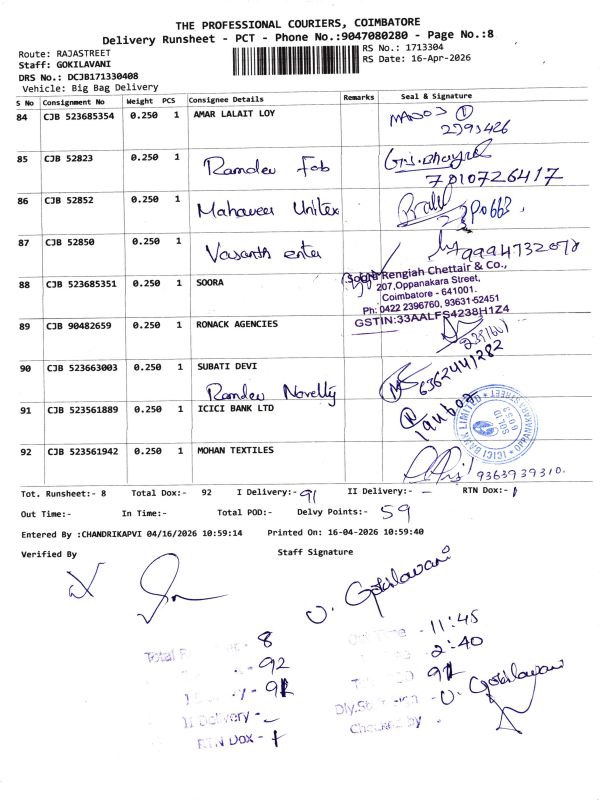 THE PROFESSIONAL COURIERS, COIMBATORE
Delivery Runsheet - PCT - Phone No.:9047080280 - Page No.:8
Route: RAJASTREET
RS No.: 1713304
Staff: GOKILAVANI
RS Date: 16-Apr-2026
DRS No.: DCJB171330408
Vehicle: Big Bag Delivery
S No Consignment No Weight PCS Consignee Details Remarks Seal & Signature
84 CJB 523685354 0.250 1 AMAR LALAIT LOY
85 CJB 52823 0.250 1 Ramdev Fab
7810726417
86 CJB 52852 0.250 1 Mahaveer Unitex
87 CJB 52850 0.250 1 Vasanth enter 9994732078
Soora Rengiah Chettair & Co.,
207,Oppanakara Street,
Coimbatore - 641001.
Ph: 0422 2396760, 93631-52451
GSTIN:33AALFS4238H1Z4
88 CJB 523685351 0.250 1 SOORA
89 CJB 90482659 0.250 1 RONACK AGENCIES
90 CJB 523663003 0.250 1 SUBATI DEVI
Ramdev Novelty 6362441282
91 CJB 523561889 0.250 1 ICICI BANK LTD
ICICI BANK LIMITED OPPANAKARA STREET
SOL ID
6053
92 CJB 523561942 0.250 1 MOHAN TEXTILES
9363939310.
Tot. Runsheet:- 8 Total Dox:- 92 I Delivery:- 91 II Delivery:- - RTN Dox:- 1
Out Time:- In Time:- Total POD:- Delvy Points:- 59
Entered By :CHANDRIKAPVI 04/16/2026 10:59:14 Printed On: 16-04-2026 10:59:40
Verified By Staff Signature
V. Gokilavani
- 8
- 92
- 91
II Delivery - -
RTN Dox - 1
- 11:45
- 2:40
91
- V. Gokilavani
Checked by -